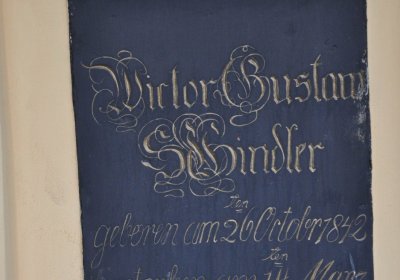 Victor Gustav
Schindler
ten
geboren am 26 October 1842
ten
gestorben am März